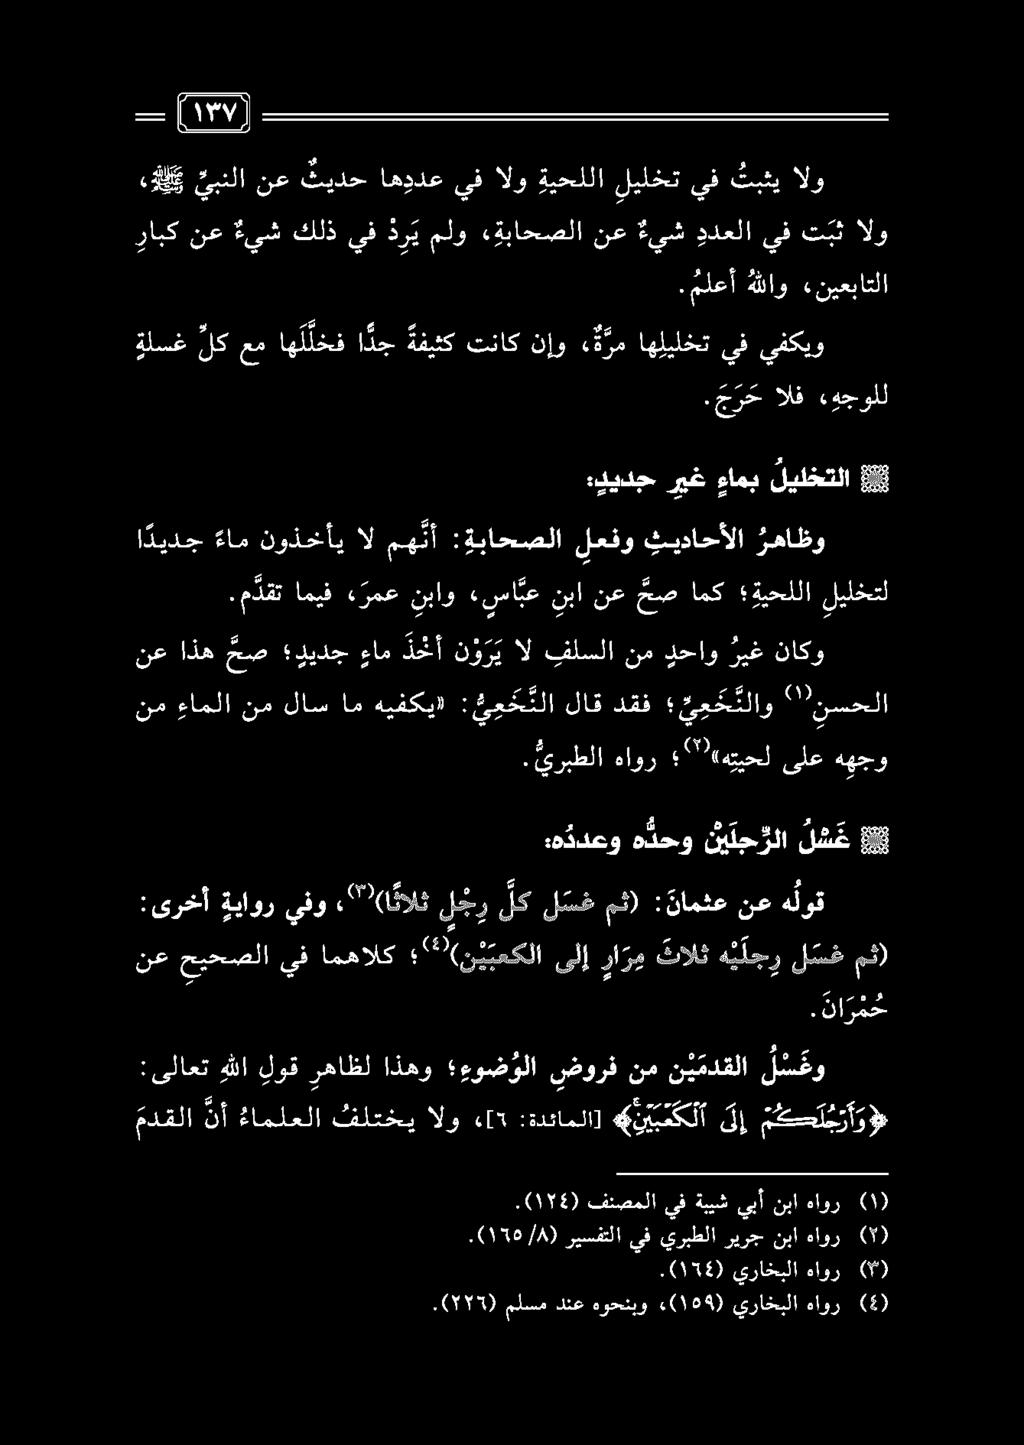 ١٣٧
ولا يثبتُ في تخليلِ اللحيةِ ولا في عددِها حديثٌ عن النبيِّ ﷺ،
ولا ثبَت في العددِ شيءٌ عن الصحابةِ، ولم يَرِدْ في ذلك شيءٌ عن كبارِ
التابعين، واللهُ أعلمُ.
ويكفي في تخليلِها مرَّةٌ، وإن كانت كثيفةً جدًّا فخلَّلَها مع كلِّ غسلةٍ
للوجهِ، فلا حَرَجَ.
التخليلُ بماءٍ غيرِ جديدٍ:
وظاهرُ الأحاديثِ وفعلِ الصحابةِ: أنَّهم لا يأخذون ماءً جديدًا
لتخليلِ اللحيةِ؛ كما صحَّ عن ابنِ عبَّاسٍ، وابنِ عمرَ، فيما تقدَّم.
وكان غيرُ واحدٍ من السلفِ لا يَرَوْن أخْذَ ماءٍ جديدٍ؛ صحَّ هذا عن
الحسنِ(١) والنَّخَعِيِّ؛ فقد قال النَّخَعِيُّ: «يكفيه ما سال من الماءِ من
وجهِه على لحيتِه»(٢)؛ رواه الطبريُّ.
غَسْلُ الرِّجلَيْنِ وحدُّه وعددُه:
قولُه عن عثمانَ: (ثم غسَل كلَّ رِجْلٍ ثلاثًا)(٣)، وفي روايةٍ أخرى:
(ثم غسَل رِجلَيْه ثلاثَ مِرَارٍ إلى الكعبَيْنِ)(٤)؛ كلاهما في الصحيحِ عن
حُمْرَانَ.
وغَسْلُ القدمَيْنِ من فروضِ الوُضوءِ؛ وهذا لظاهرِ قولِ اللهِ تعالى:
﴿وَأَرْجُلَكُمْ إِلَى ٱلْكَعْبَيْنِۚ﴾ [المائدة: ٦]، ولا يختلفُ العلماءُ أنَّ القدمَ
(١) رواه ابن أبي شيبة في المصنف (١٢٤).
(٢) رواه ابن جرير الطبري في التفسير (٨/ ١٦٥).
(٣) رواه البخاري (١٦٤).
(٤) رواه البخاري (١٥٩)، وبنحوه عند مسلم (٢٢٦).